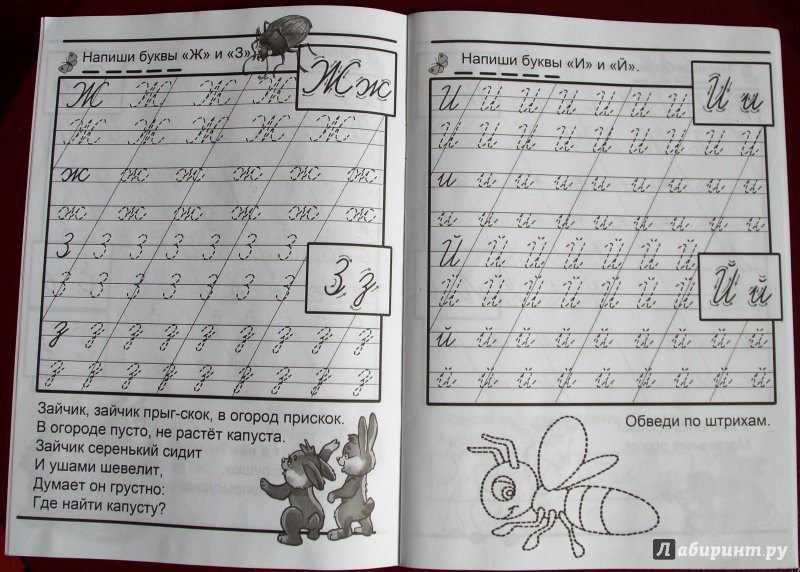 Напиши буквы «Ж» и «З».
Ж ж
Ж Ж Ж Ж
Ж Ж Ж Ж Ж
ж ж ж ж ж ж
ж ж ж ж ж ж
З з
З З З З З З З
З З З З З З З
з з з з з з з з з
з з з з з з з з з
Зайчик, зайчик прыг-скок, в огород прискок.
В огороде пусто, не растёт капуста.
Зайчик серенький сидит
И ушами шевелит,
Думает он грустно:
Где найти капусту?
Напиши буквы «И» и «Й».
И и
И И И И И И И
И И И И И И И И И
и и и и и и и и и
и и и и и и и и и
Й й
Й Й Й Й Й Й Й
Й Й Й Й Й Й Й
й й й й й й й й й
й й й й й й й й й
Обведи по штрихам.
Лабиринт.ру